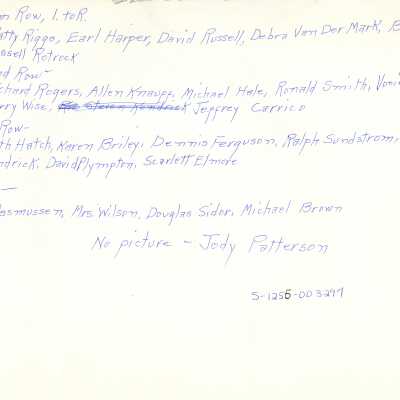 m Row, l. to R.
atty Riggs, Earl Harper, David Russell, Debra Van Der Mark, B
ssell Rotrock
d Row-
chard Rogers, Allen Knauff, Michael Hale, Ronald Smith, Vo
rry Wise, Steve Kendrick Jeffrey Carrico
Row-
th Hatch, Karen Briley, Dennis Ferguson, Ralph Sundstrom,
ndrick, David Plympton, Scarlett Elmore
asmussen, Mrs Wilson, Douglas Sidor, Michael Brown
No picture - Jody Patterson
S-1255-003297